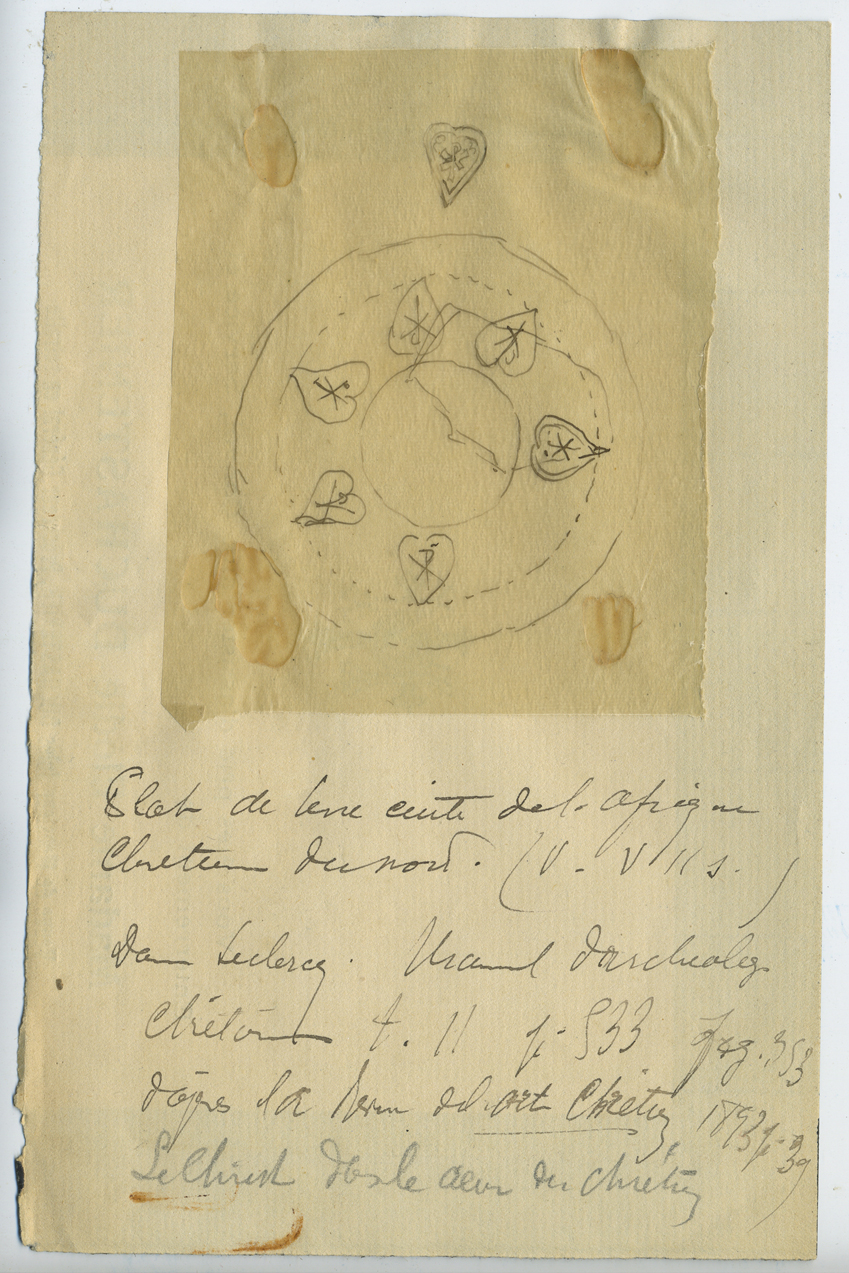 Plat de terre cuite de l'afrique
Chretienne du nord. (V - VII s.)
Dom Leclercq. Manuel d'archeologie
Chrétienne t. II p. 533 fig. 353
d'après la Revue de l'art Chrétien, 1893 p. 39
Le Christ dans le cœur du chrétien